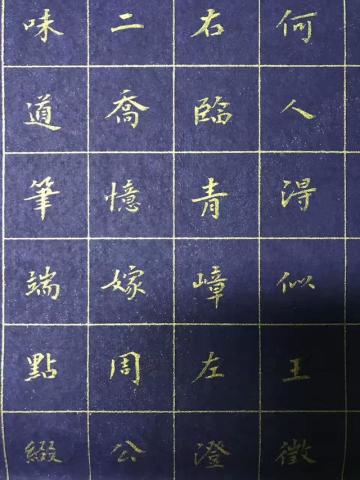 何人淂似王徵
右臨青嶂左澄
二喬憶嫁周公
味道筆端點綴